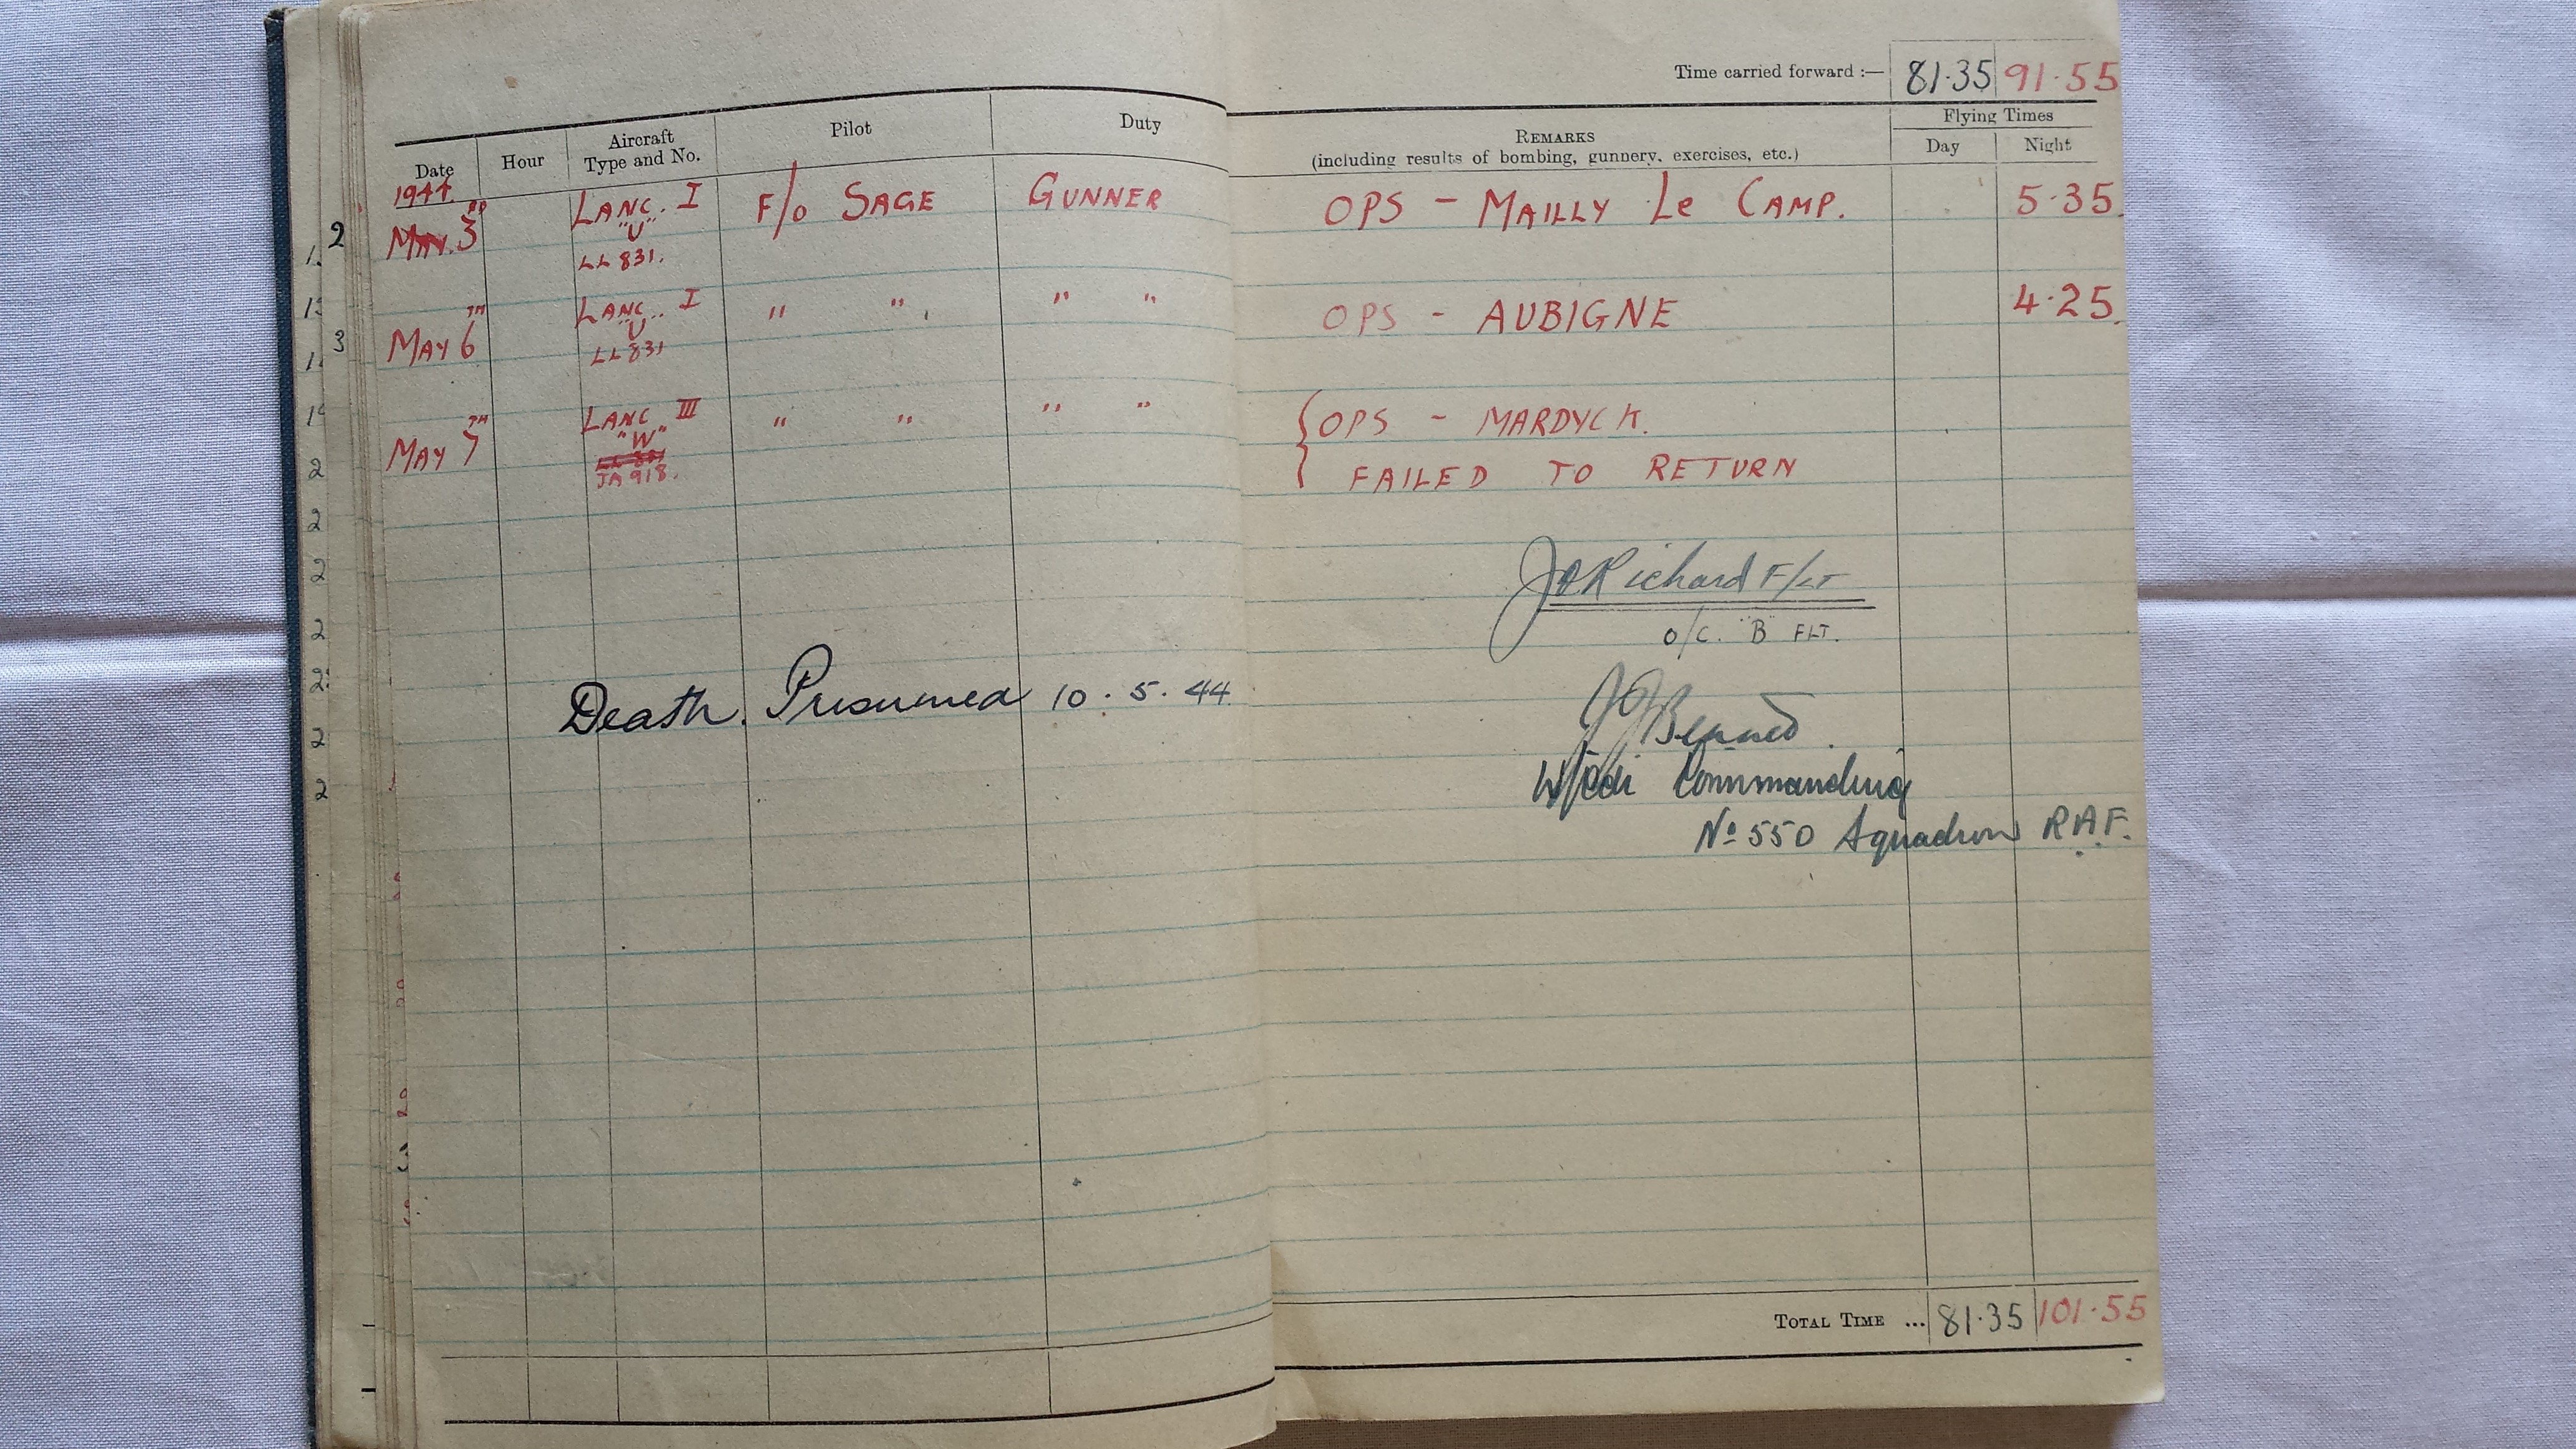 Time carried forward :— 81·35 91·55
Date Hour Aircraft Type and No. Pilot Duty REMARKS (including results of bombing, gunnery, exercises, etc.) Flying Times Day Night
1944.
MAY 3RD LANC. I "U" LL 831. F/O SAGE GUNNER OPS - MAILLY Le CAMP. 5·35.
MAY 6TH LANC. I "U" LL 831 " " " " OPS - AUBIGNE 4·25.
MAY 7TH LANC III "W" JA 918. " " " " { OPS - MARDYCK.
FAILED TO RETURN
Richard F/LT
O/C. "B" FLT.
Death Presumed 10.5.44.
Bennett
Commanding
No 550 Squadron RAF.
TOTAL TIME ... 81·35 101·55